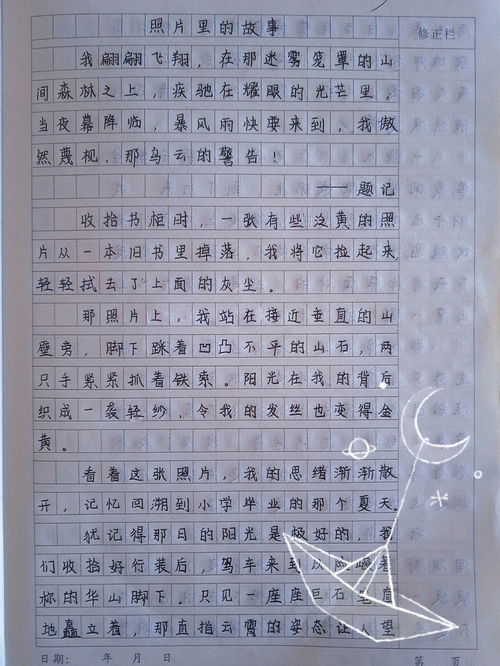 照片里的故事
修正栏
我翩翩飞翔，在那迷雾笼罩的山
间森林之上，疾驰在耀眼的光芒里，
当夜幕降临，暴风雨快要来到，我傲
然蔑视，那乌云的警告！
——题记
收拾书柜时，一张有些泛黄的照
片从一本旧书里掉落，我将它捡起来，
轻轻拭去了上面的灰尘。
那照片上，我站在接近垂直的山
壁旁，脚下踩着凹凸不平的山石，两
只手紧紧抓着铁索。阳光在我的背后
织成一袭轻纱，令我的发丝也变得金
黄。
看着这张照片，我的思绪渐渐散
开，记忆回溯到小学毕业的那个夏天。
犹记得那日的阳光是极好的，我
们收拾好行装后，驾车来到以险峻著
称的华山脚下。只见一座座巨石笔直
地矗立着，那直指云霄的姿态让人望
日期： 年 月 日
第 页